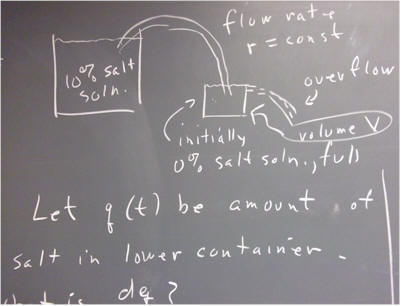 flow rate
r = const
10% salt
soln.
overflow
volume V
initially
0% salt soln., full
Let q(t) be amount of
salt in lower container.
is dq?